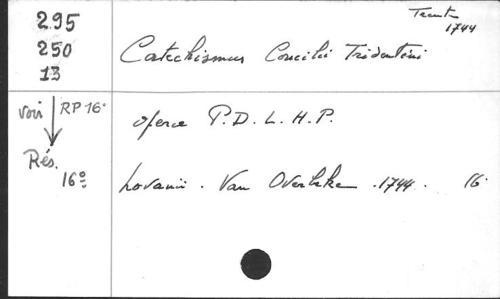 295
250
13
Trente
1744
Catechismus Concilii Tridentini
voir RP 16°
Rés.
16°
opera P.D.L.H.P.
Lovanii. Van Overbeke. 1744. 16°